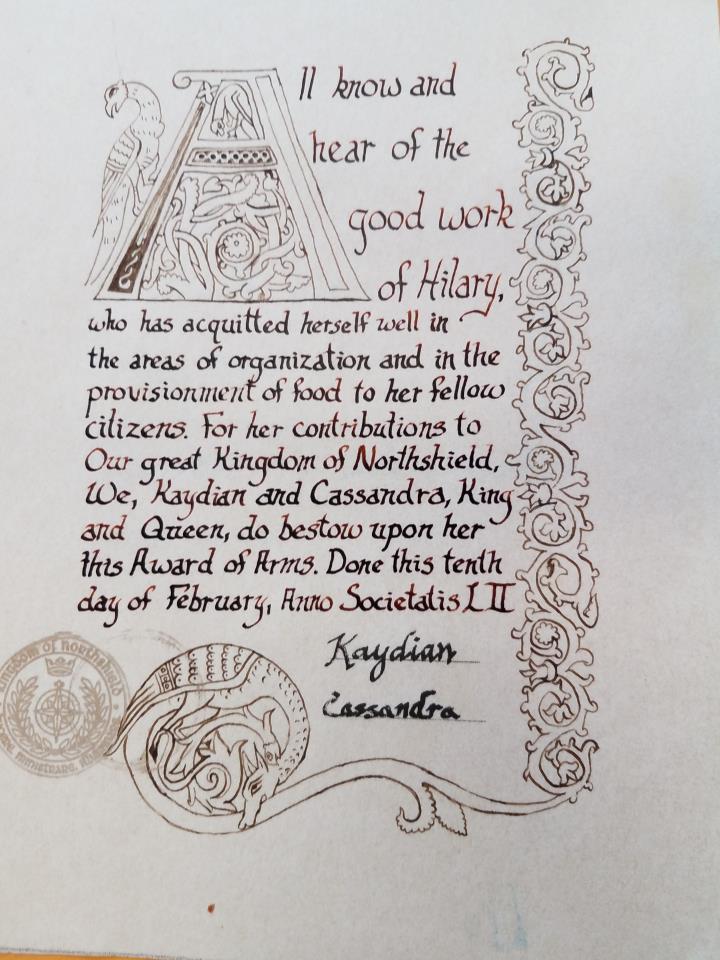 All know and
hear of the
good work
of Hilary,
who has acquitted herself well in
the areas of organization and in the
provisionment of food to her fellow
citizens. For her contributions to
Our great Kingdom of Northshield,
We, Kaydian and Cassandra, King
and Queen, do bestow upon her
this Award of Arms. Done this tenth
day of February, Anno Societatis LII
Kaydian
Cassandra
Kingdom of Northshield